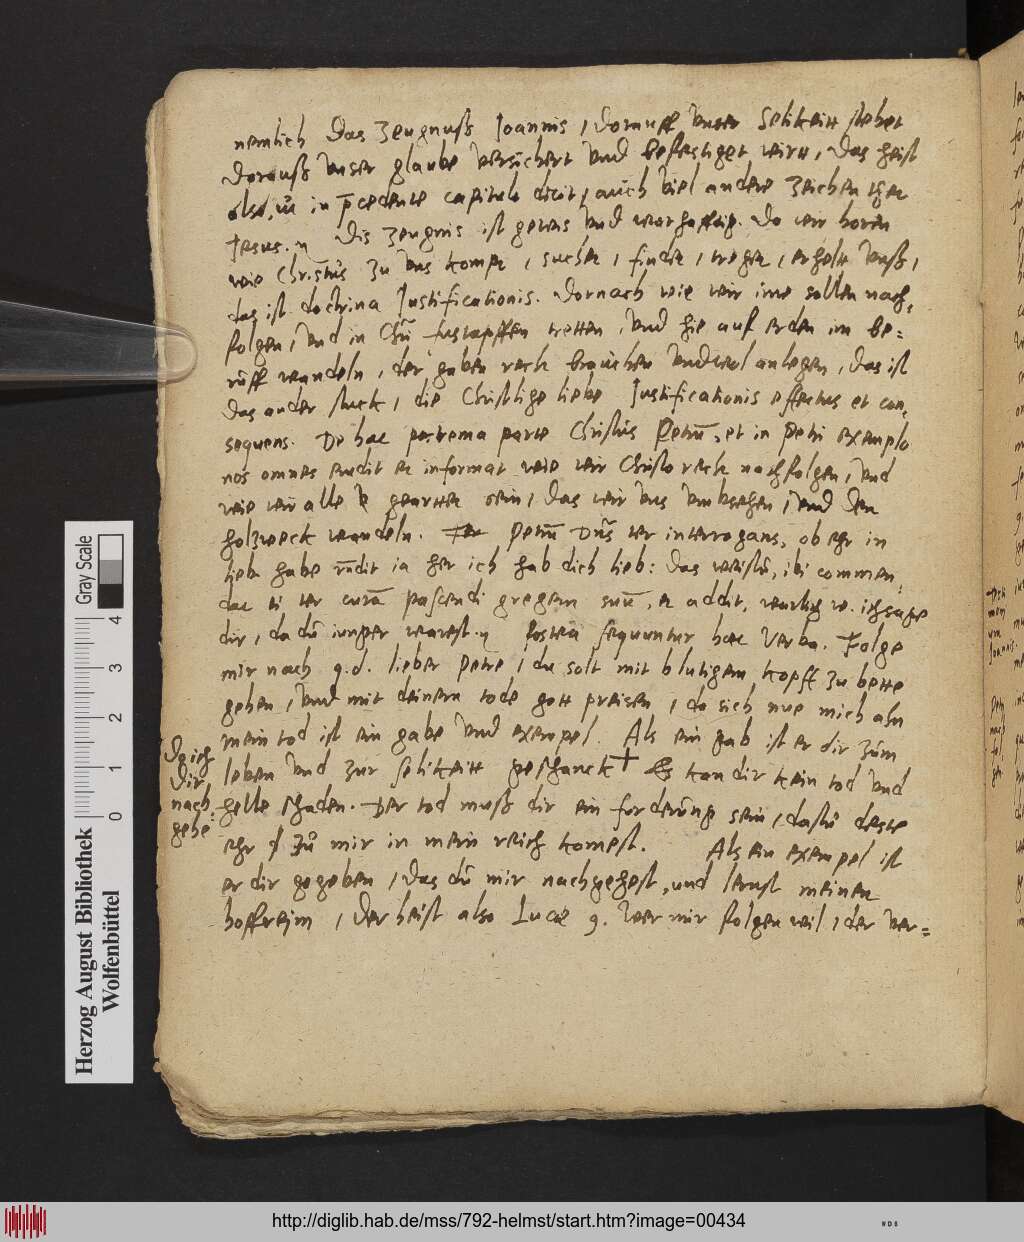 nemlich das zeugnuß Joannis, dorauff unser Selikeitt stehet
dorauß unser glaube versichert und befestiget wirtt, das heist
also, in precedente capitulo dicit, auch viel andere zeichen thet
Jesus. Dis zeugnis ist gewis und worhafftig. Do wir horen
wie Christus zu uns kompt, suchet, findet, treget, erhelt unß,
das ist doctrina Justificationis. Dornach wie wir ime sollen nach=
folgen, und in Chri fustapffen tretten, und hie auf erden im be=
ruff wandeln, der gaben recht brauchen und wol anlegen, das ist
das ander stuck, die Christlige liebe Justificationis effectus et con,
sequens. De hac postrema parte Christus Petru, et in Petri exemplo
nos omnes erudit et informat wie wir Christo recht nachfolgen, und
wie wir alle gearttet sein, das wir uns umbsehen, und den
holzweck wandeln. Petru Dns ter interrogans, ob ehr in
lieb habe rndit ia her ich hab dich lieb: das weistu, ibi commen,
dat ei ter cura pascendi gregem suu, et addit, warlich w. ich sage
dir, da du iunger warest. postea sequuntur haec verba. Folge
mir nach q.d. lieber Petre, du solt mit blutigem kopff zu bette
gehen, und mit deinem tode gott preisen, do sich nue mich ahn
mein tod ist ein gabe und exempel. Als ein gab ist er dir zum
leben und zur selikeitt geschanckt Es kan dir kein tod und
helle schaden. Der tod muß dir ein forderung sein, dastu deste
ehr zu mir in mein reich komest. Als ein exempel ist
er dir gegeben, das du mir nachgehest, und lernst meinen
hoffreim, der heist also Lucae 9. Wer mir folgen wil, der ver=
Do ich
dir
nach
gebe:
Herzog August Bibliothek
Wolfenbüttel
0 1 2 3 4
Gray Scale
http://diglib.hab.de/mss/792-helmst/start.htm?image=00434